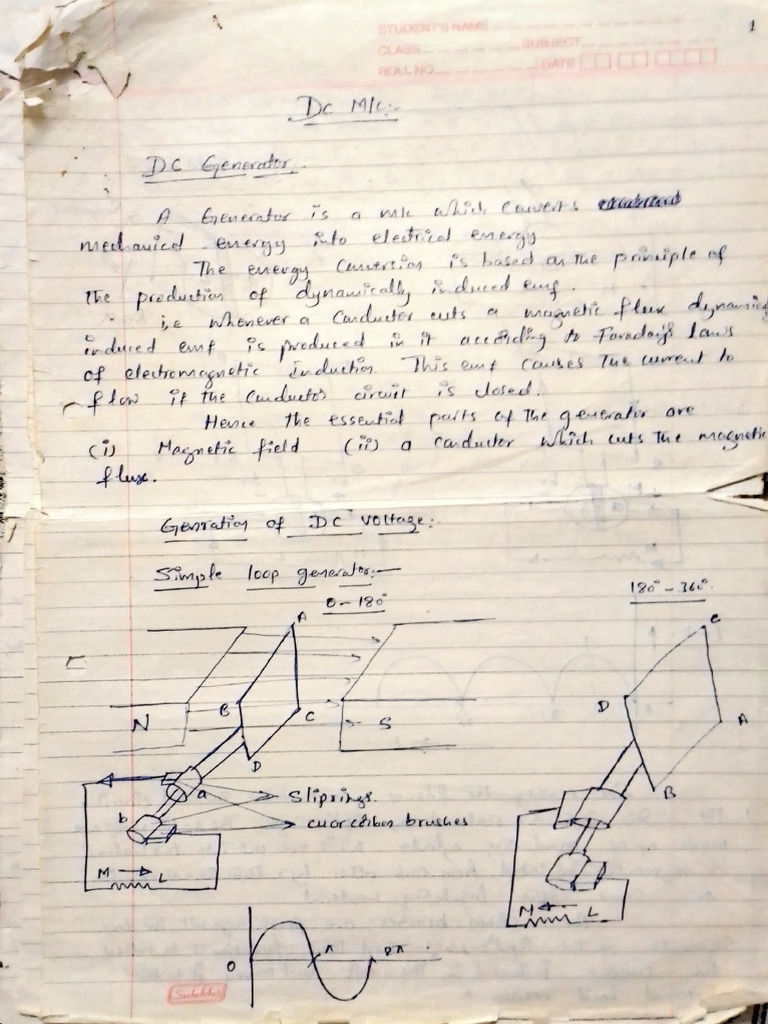 1
STUDENT'S NAME
CLASS SUBJECT
ROLL NO. DATE
DC M/c:-
DC Generator.
A Generator is a m/c which converts
mechanical energy into electrical energy
The energy conversion is based on the principle of
the production of dynamically induced emf.
i.e whenever a conductor cuts a magnetic flux dynamic
induced emf is produced in it according to Faraday's laws
of electromagnetic Induction. This emf causes the current to
flow if the conductor circuit is closed.
Hence the essential parts of the generator are
(i) Magnetic field (ii) a conductor which cuts the magnetic
flux.
Genration of DC voltage:
Simple loop generator:-
0-180° 180°-360°
A C
N B C S D A
D B
a
b Sliprings
carbon brushes
M L M L
0 π 2π